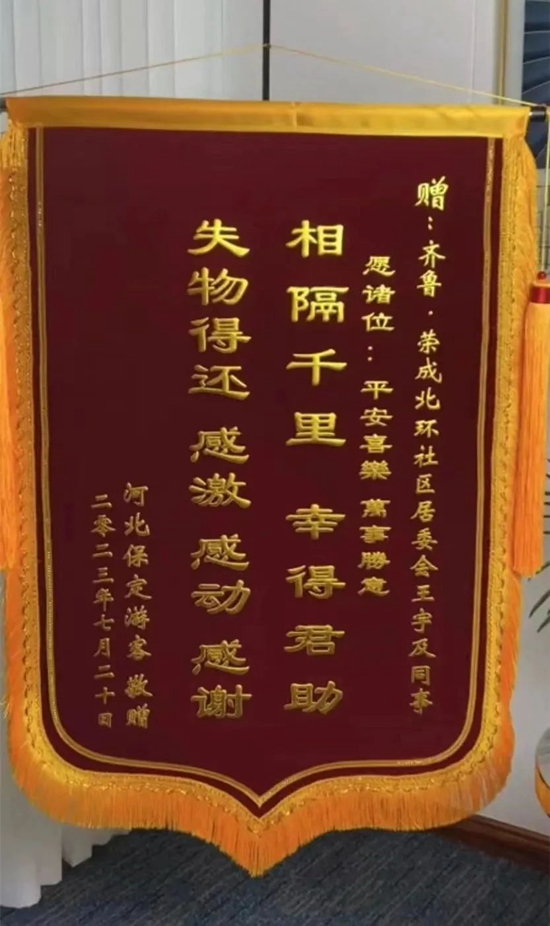 赠：齐鲁·荣成北环社区居委会王宇及同事
愿诸位：平安喜樂 萬事勝意
相隔千里 幸得君助
失物得还 感激 感动 感谢
河北保定游客敬赠
二零二三年七月二十日